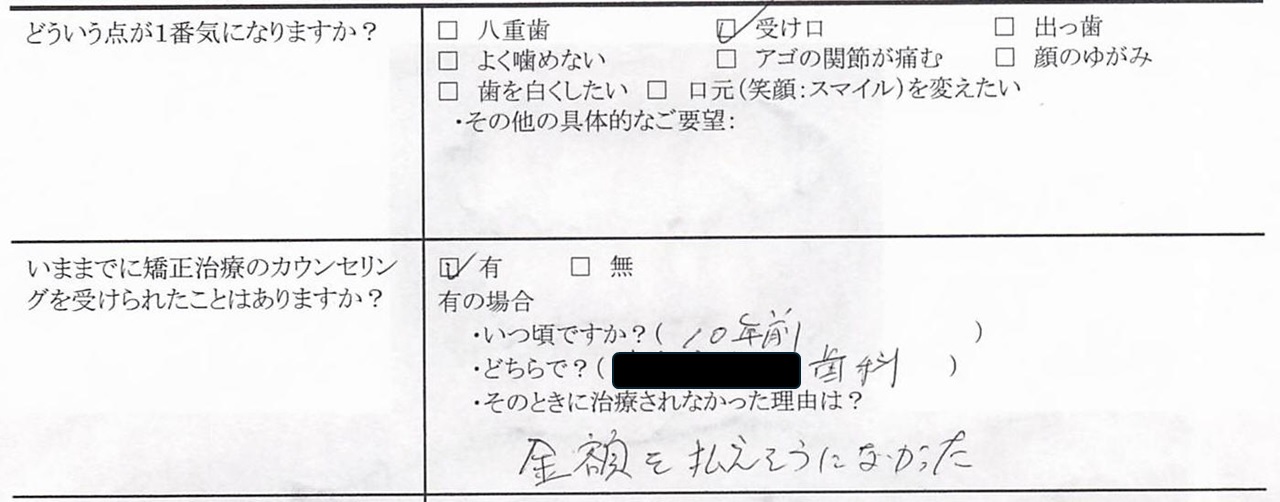 どういう点が1番気になりますか？
□ 八重歯 ☑ 受け口 □ 出っ歯
□ よく噛めない □ アゴの関節が痛む □ 顔のゆがみ
□ 歯を白くしたい □ 口元（笑顔：スマイル）を変えたい
・その他の具体的なご要望：
いままでに矯正治療のカウンセリン
グを受けられたことはありますか？
☑ 有 □ 無
有の場合
・いつ頃ですか？（ 10年前 ）
・どちらで？（ 歯科 ）
・そのときに治療されなかった理由は？
金額を払えそうになかった